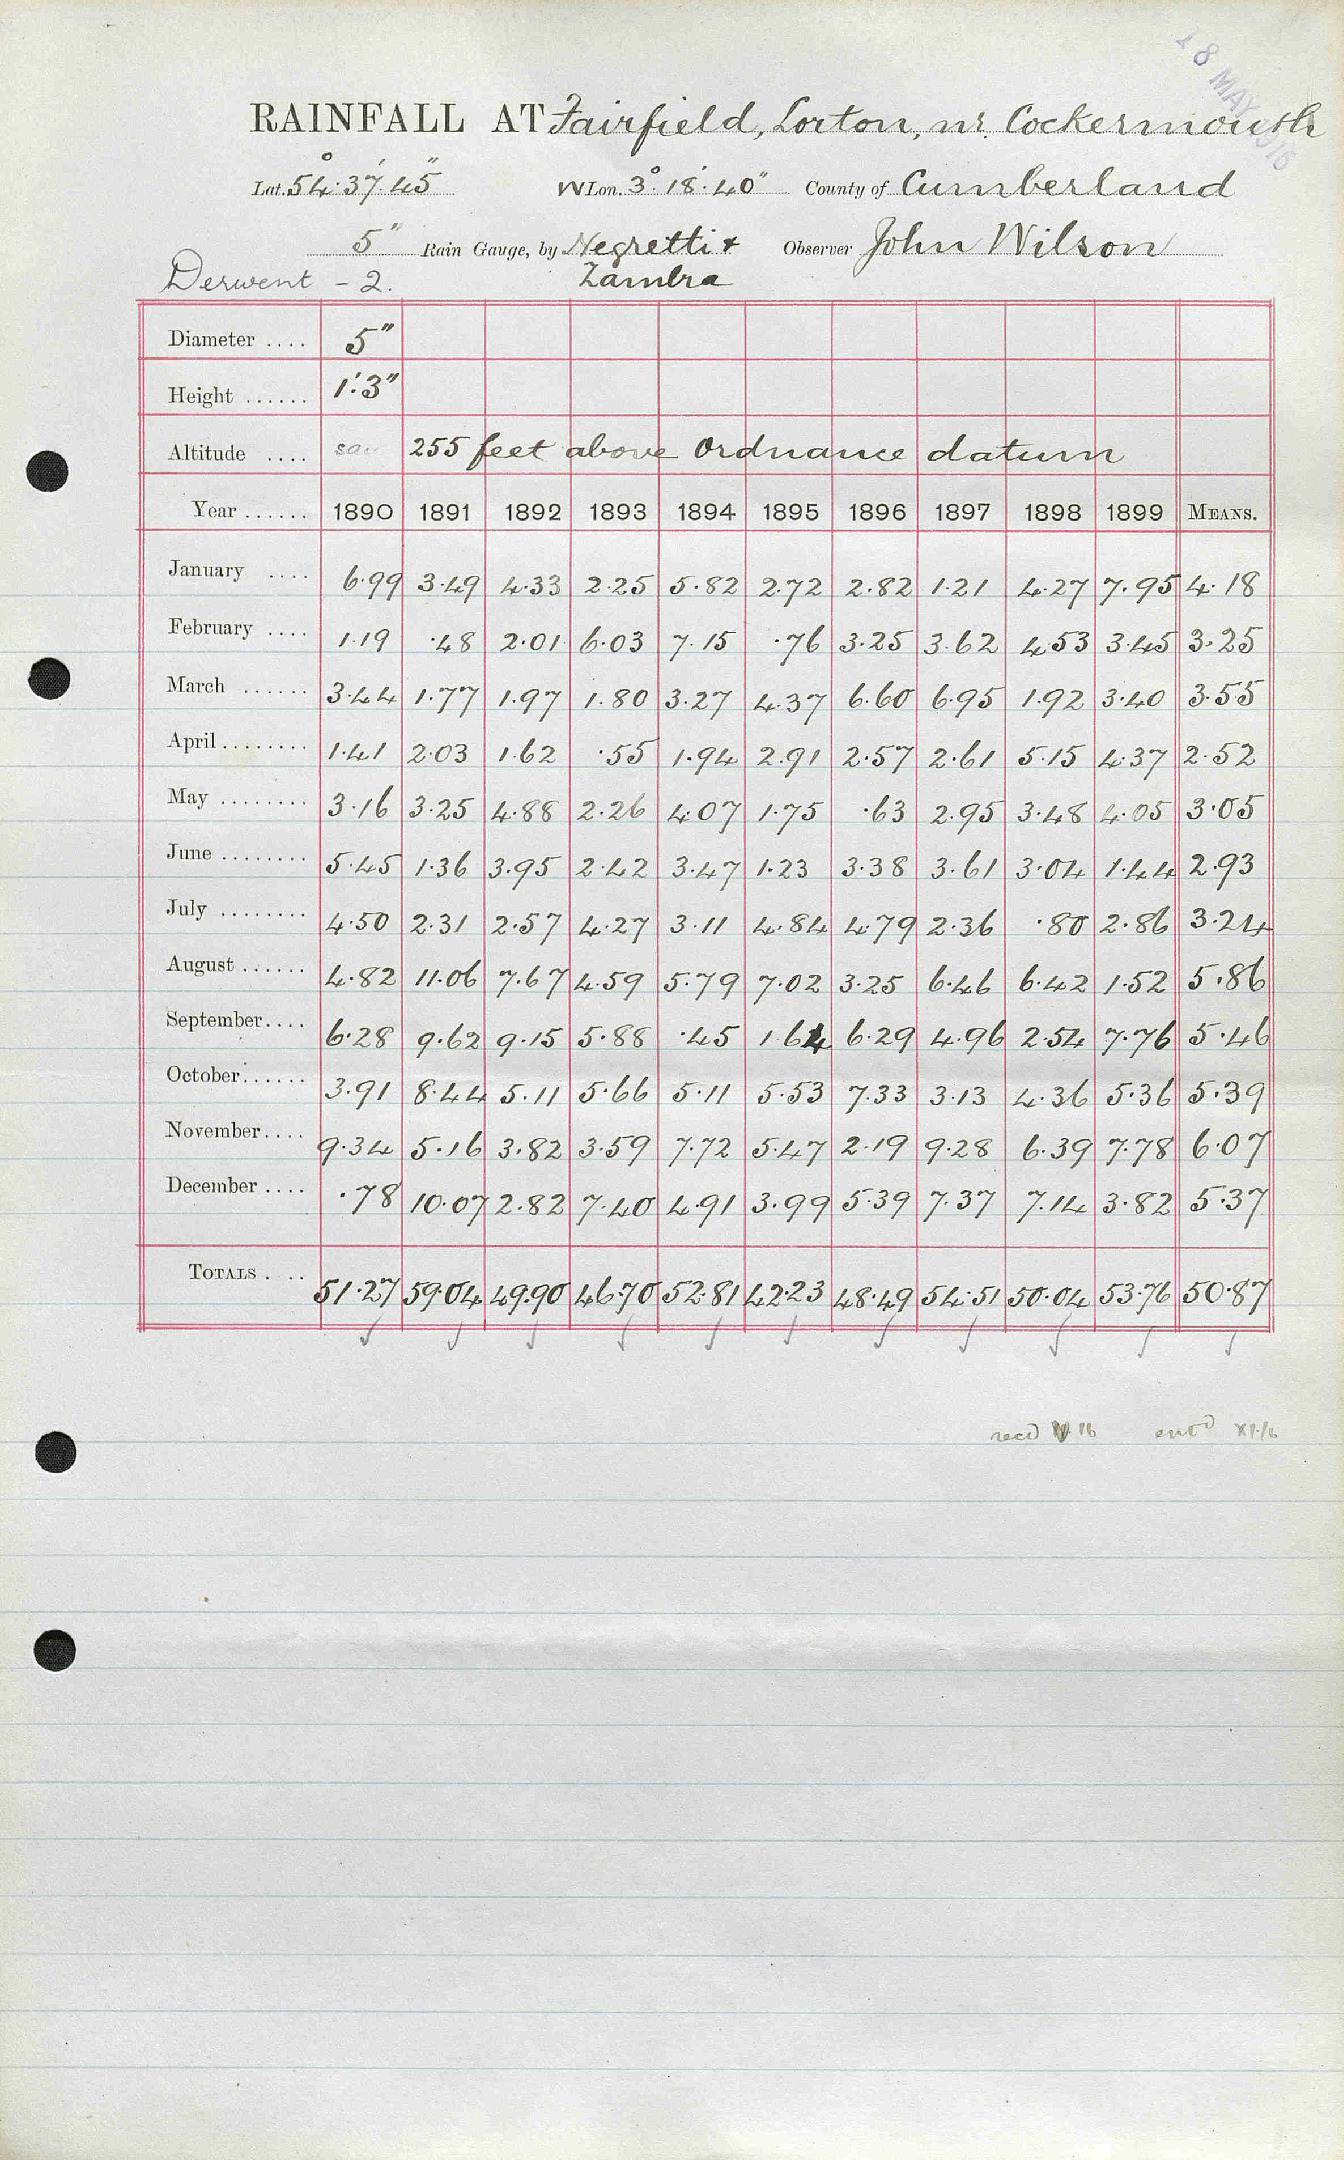 18 MAY 1916
RAINFALL AT Fairfield, Lorton, nr. Cockermouth
Lat. 54° 37' 45" W Lon. 3° 18' 40" County of Cumberland
5" Rain Gauge, by Negretti & Zambra Observer John Wilson
Derwent - 2.
Diameter .... 5"
Height ...... 1' 3"
Altitude .... 255 feet above Ordnance datum
Year ...... 1890 1891 1892 1893 1894 1895 1896 1897 1898 1899 MEANS.
January .... 6.99 3.49 4.33 2.25 5.82 2.72 2.82 1.21 4.27 7.95 4.18
February .... 1.19 .48 2.01 6.03 7.15 .76 3.25 3.62 4.53 3.45 3.25
March ...... 3.44 1.77 1.97 1.80 3.27 4.37 6.60 6.95 1.92 3.40 3.55
April ........ 1.41 2.03 1.62 .55 1.94 2.91 2.57 2.61 5.15 4.37 2.52
May ........ 3.16 3.25 4.88 2.26 4.07 1.75 .63 2.95 3.48 4.05 3.05
June ........ 5.45 1.36 3.95 2.42 3.47 1.23 3.38 3.61 3.04 1.44 2.93
July ........ 4.50 2.31 2.57 4.27 3.11 4.84 4.79 2.36 .80 2.86 3.24
August ...... 4.82 11.06 7.67 4.59 5.79 7.02 3.25 6.46 6.42 1.52 5.86
September.... 6.28 9.62 9.15 5.88 .45 1.64 6.29 4.96 2.54 7.76 5.46
October ...... 3.91 8.44 5.11 5.66 5.11 5.53 7.33 3.13 4.36 5.36 5.39
November.... 9.34 5.16 3.82 3.59 7.72 5.47 2.19 9.28 6.39 7.78 6.07
December .... .78 10.07 2.82 7.40 4.91 3.99 5.39 7.37 7.14 3.82 5.37
TOTALS .... 51.27 59.04 49.90 46.70 52.81 42.23 48.49 54.51 50.04 53.76 50.87
recd V 16 entd XI.16